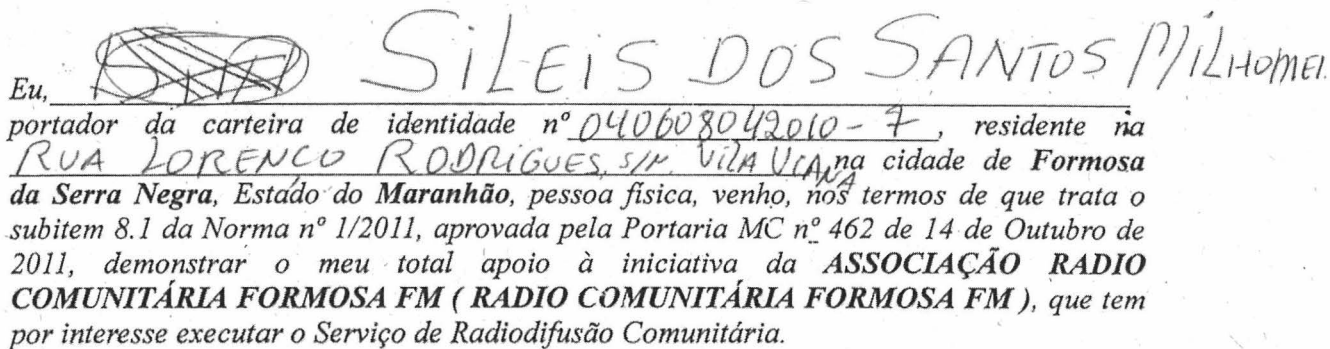 Eu, SiLEiS DOS SANTOS MiLHOMEI
portador da carteira de identidade nº 040608042010-7, residente na
RUA LORENCO RODRiGUES, S/N. ViLA na cidade de Formosa
da Serra Negra, Estado do Maranhão, pessoa física, venho, nos termos de que trata o
subitem 8.1 da Norma nº 1/2011, aprovada pela Portaria MC nº 462 de 14 de Outubro de
2011, demonstrar o meu total apoio à iniciativa da ASSOCIAÇÃO RADIO
COMUNITÁRIA FORMOSA FM ( RADIO COMUNITÁRIA FORMOSA FM ), que tem
por interesse executar o Serviço de Radiodifusão Comunitária.